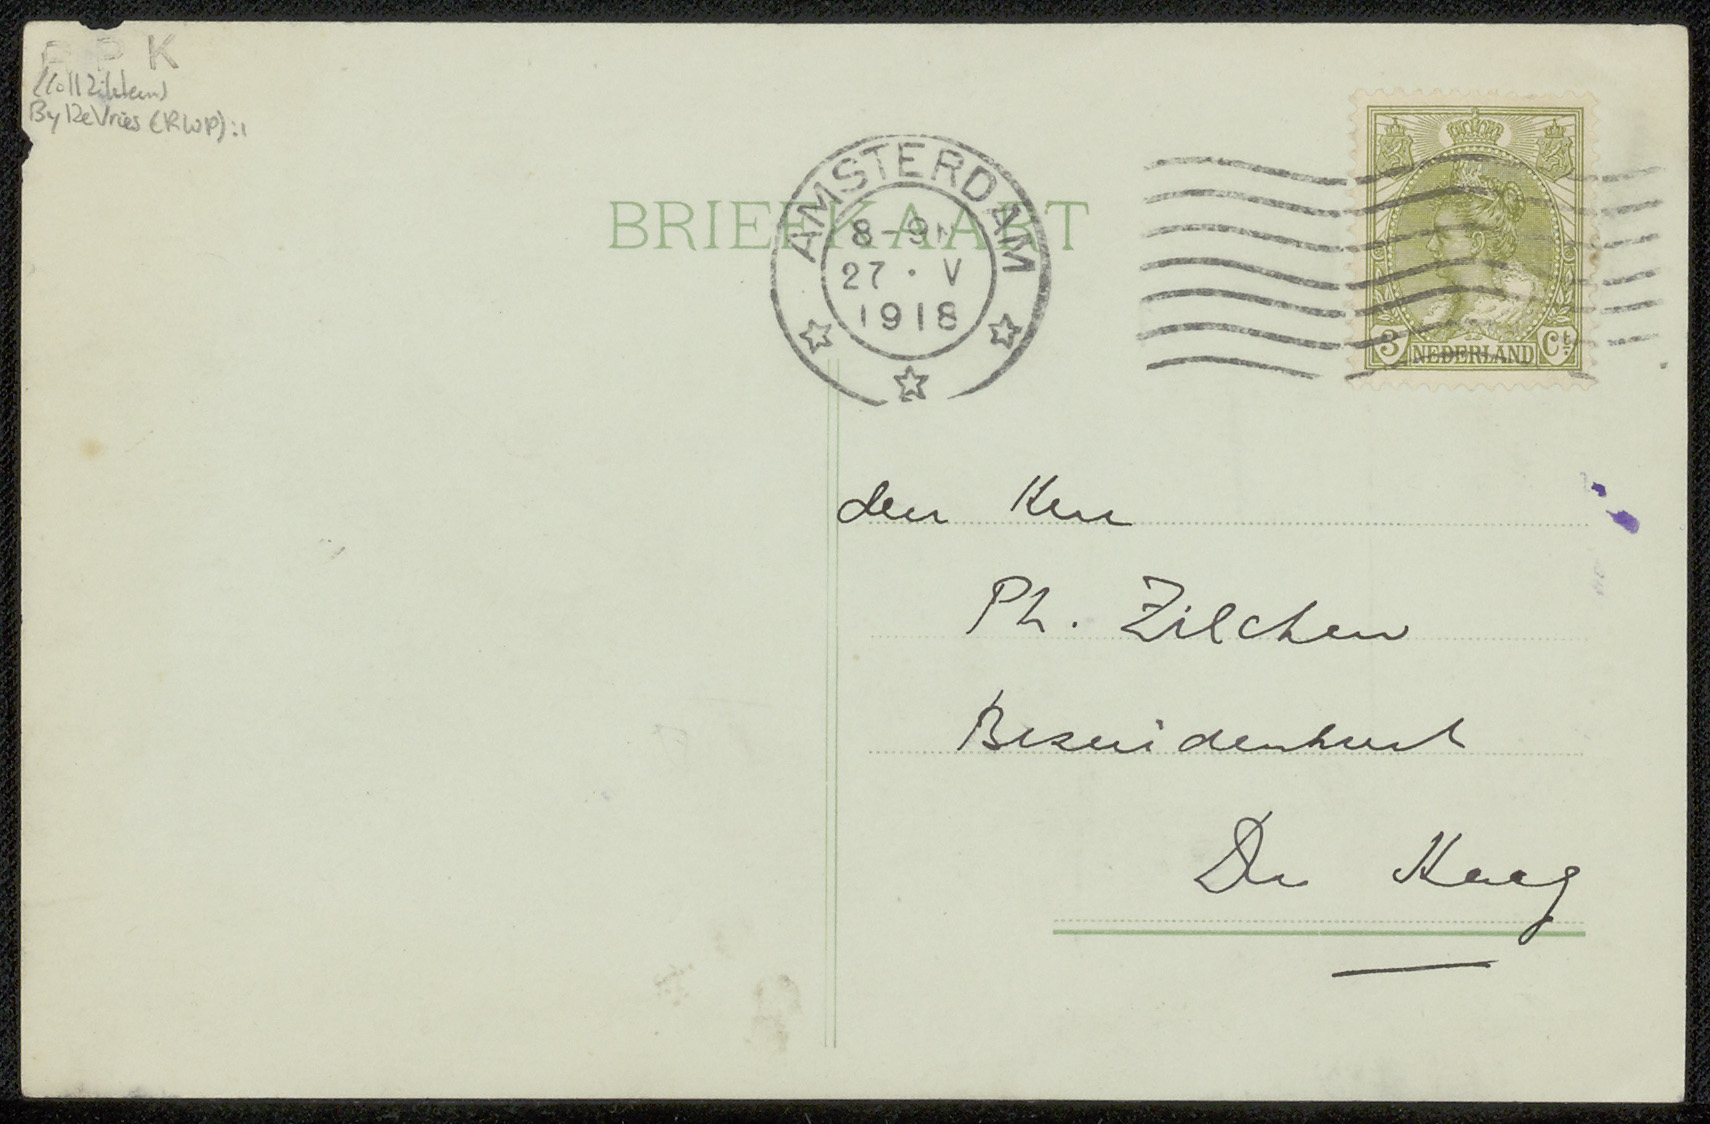 RPK
(Coll Zilcken)
By De Vries (RWP):1
BRIEFKAART
AMSTERDAM
8-9N
27 · V
1918
3 NEDERLAND Ct
den Heer
Ph. Zilcken
Bezuidenhout
Den Haag